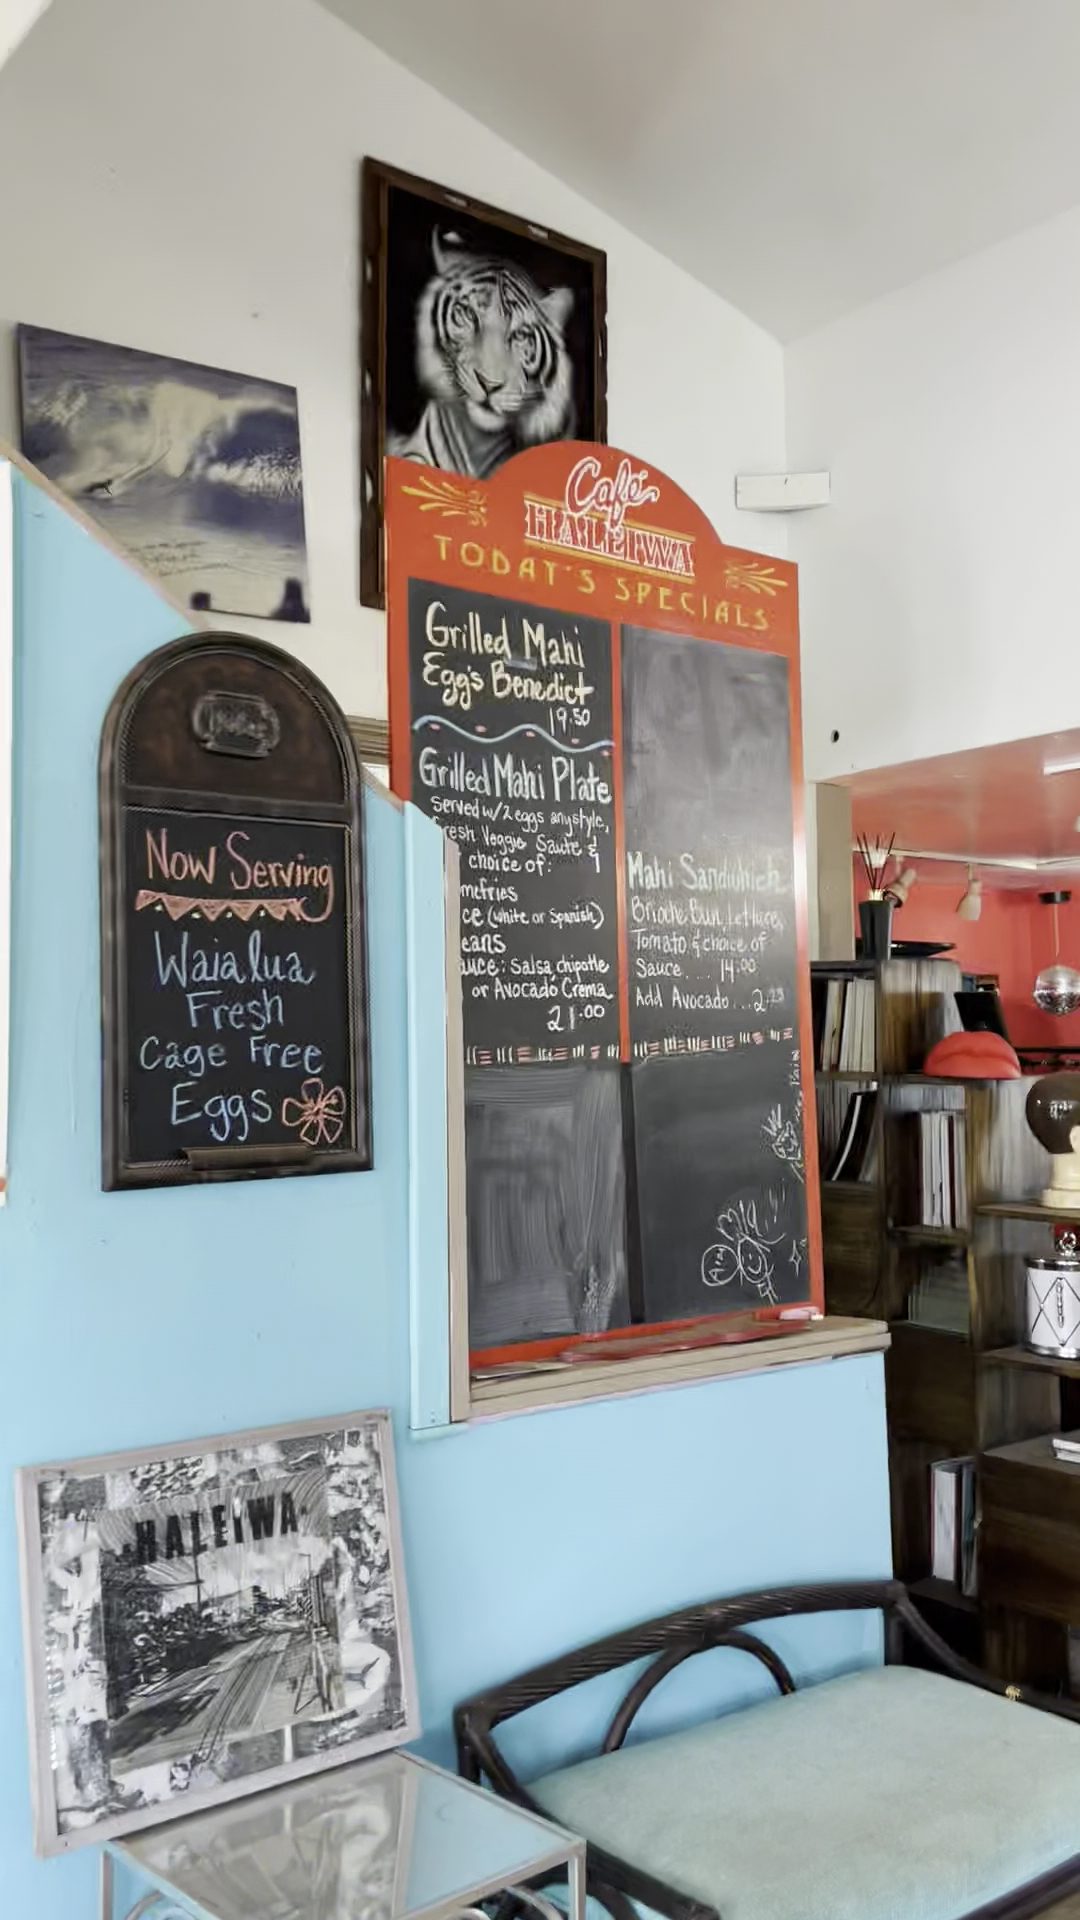 Café
HALEIWA
TODAY'S SPECIALS
Grilled Mahi
Egg's Benedict
19.50
Grilled Mahi Plate
served w/2 eggs any style,
fresh Veggie Saute &
choice of:
mefries
ce (white or Spanish)
eans
auce: Salsa, chipotle
or Avocado Crema
21.00
Mahi Sandwhich
Brioche Bun, Lettuce,
Tomato & choice of
Sauce.... 14.00
Add Avocado...
Now Serving
Waialua
Fresh
Cage Free
Eggs
HALEIWA